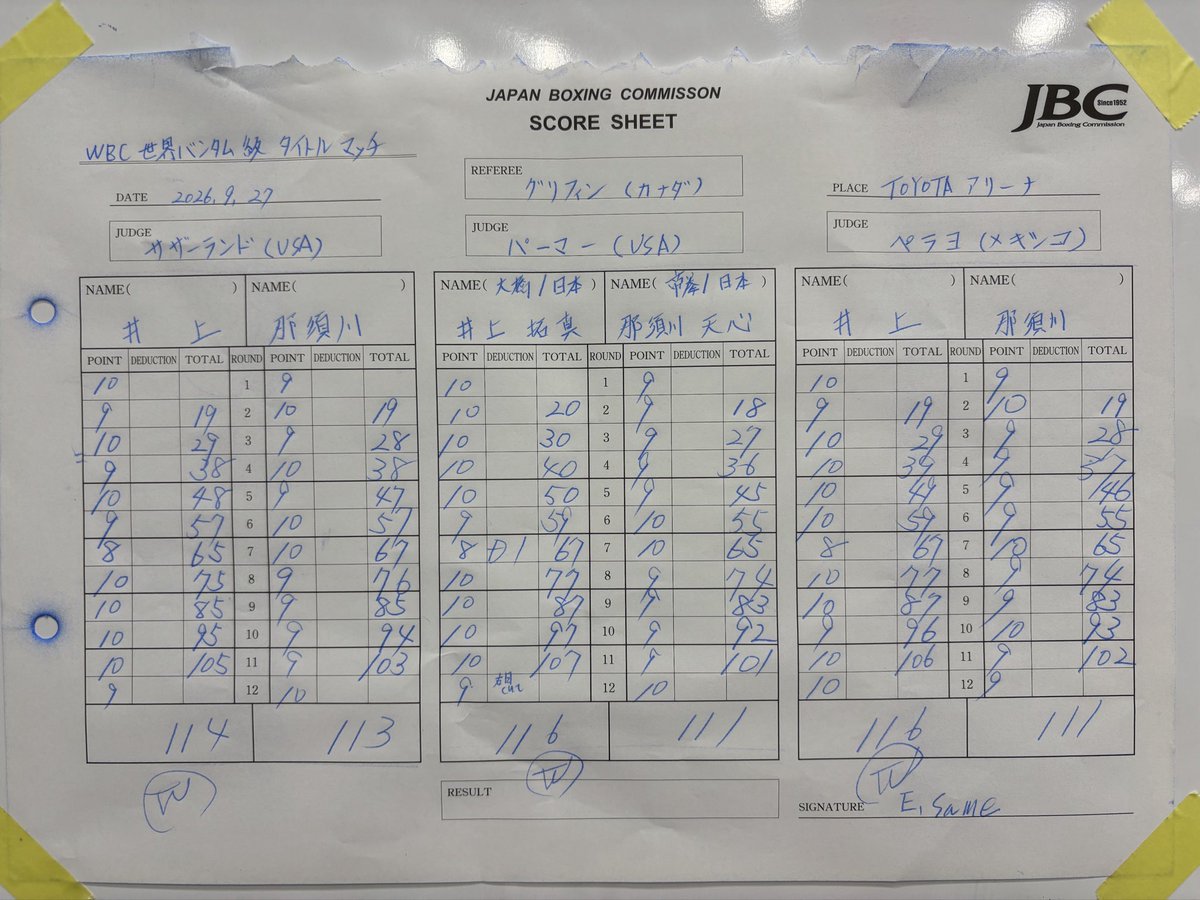 JAPAN BOXING COMMISSON
SCORE SHEET
JBC Since1952
Japan Boxing Commission
WBC 世界バンタム級 タイトルマッチ
DATE 2026.9.27
REFEREE グリフィン (カナダ)
PLACE TOYOTA アリーナ
JUDGE サザーランド (USA)
JUDGE パーマー (USA)
JUDGE ペラヨ (メキシコ)
NAME( ) NAME( ) NAME( 大橋/日本 ) NAME( 帝拳/日本 ) NAME( ) NAME( )
井上 那須川 井上 拓真 那須川 天心 井上 那須川
POINT DEDUCTION TOTAL ROUND POINT DEDUCTION TOTAL POINT DEDUCTION TOTAL ROUND POINT DEDUCTION TOTAL POINT DEDUCTION TOTAL ROUND POINT DEDUCTION TOTAL
10 1 9 10 1 9 10 1 9
9 19 2 10 19 10 20 2 9 18 9 19 2 10 19
10 29 3 9 28 10 30 3 9 27 10 29 3 9 28
9 38 4 10 38 10 40 4 9 36 10 39 4 9 37
10 48 5 9 47 10 50 5 9 45 10 49 5 9 46
9 57 6 10 57 9 59 6 10 55 10 59 6 9 55
8 65 7 10 67 8 D1 67 7 10 65 8 67 7 10 65
10 75 8 9 76 10 77 8 9 74 10 77 8 9 74
10 85 9 9 85 10 87 9 9 83 10 87 9 9 83
10 95 10 9 94 10 97 10 9 92 9 96 10 10 93
10 105 11 9 103 10 107 11 9 101 10 106 11 9 102
9 12 10 9 右目cut 12 10 10 12 9
114 113 116 111 116 111
W W W
RESULT
SIGNATURE E. Same